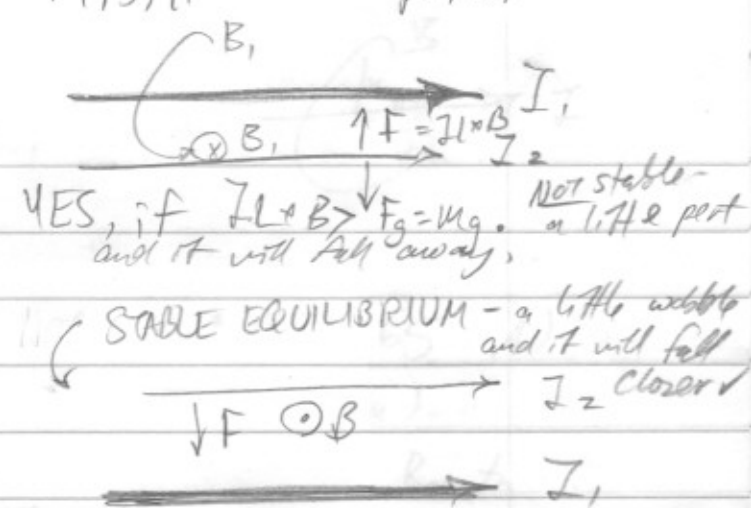 B₁
I₁
B₁ ↑F = Il×B I₂
YES, if IL×B > Fg = mg. NOT stable -
a little pert
and it will fall away.
STABLE EQUILIBRIUM - a little wobble
and it will fall
closer
I₂
↓F ⊙B
I₁